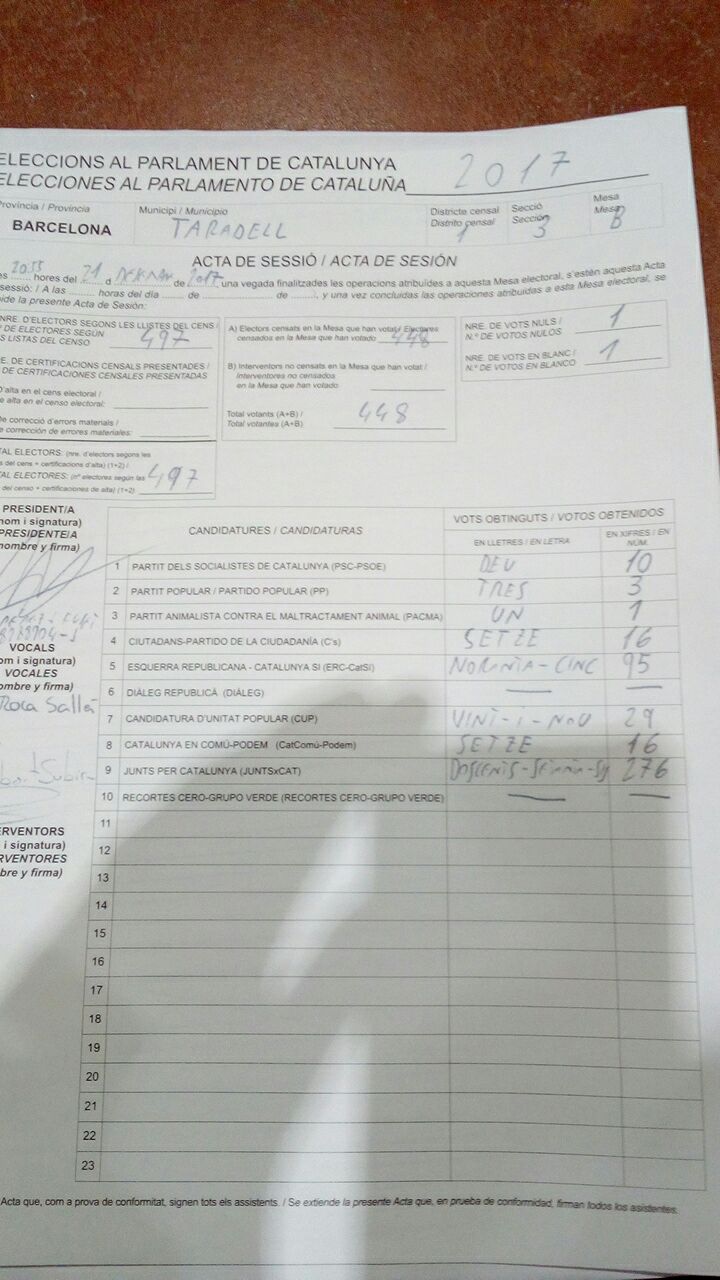 ELECCIONS AL PARLAMENT DE CATALUNYA
ELECCIONES AL PARLAMENTO DE CATALUÑA 2017
Província / Provincia
BARCELONA
Municipi / Municipio
TARADELL
Districte censal
Distrito censal
1
Secció
Sección
3
Mesa
Mesa
B
ACTA DE SESSIÓ / ACTA DE SESIÓN
hores del 21 d de 2017 una vegada finalitzades les operacions atribuïdes a aquesta Mesa electoral, s'estén aquesta Acta
sessió: / A las .......... horas del día ....... de .................. de ........, y una vez concluidas las operaciones atribuidas a esta Mesa electoral, se
ide la presente Acta de Sesión:
NRE. D'ELECTORS SEGONS LES LLISTES DEL CENS /
º DE ELECTORES SEGÚN
S LISTAS DEL CENSO
497
E. DE CERTIFICACIONS CENSALS PRESENTADES /
DE CERTIFICACIONES CENSALES PRESENTADAS
D'alta en el cens electoral /
e alta en el censo electoral:
De correcció d'errors materials /
e corrección de errores materiales:
AL ELECTORS: (nre. d'electors segons les
s del cens + certificacions d'alta) (1+2) /
AL ELECTORES: (nº electores según las
del censo + certificaciones de alta) (1+2)
497
A) Electors censats en la Mesa que han votat / Electores
censados en la Mesa que han votado
448
B) Interventors no censats en la Mesa que han votat /
Interventores no censados
en la Mesa que han votado
Total votants (A+B) /
Total votantes (A+B)
448
NRE. DE VOTS NULS /
N.º DE VOTOS NULOS
1
NRE. DE VOTS EN BLANC /
N.º DE VOTOS EN BLANCO
1
PRESIDENT/A
nom i signatura)
PRESIDENTE/A
nombre y firma)
VOCALS
om i signatura)
VOCALES
ombre y firma)
Roca Sallà
Subira
ERVENTORS
i signatura)
RVENTORES
bre y firma)
CANDIDATURES / CANDIDATURAS
VOTS OBTINGUTS / VOTOS OBTENIDOS
EN LLETRES / EN LETRA
EN XIFRES / EN NÚM.
1 PARTIT DELS SOCIALISTES DE CATALUNYA (PSC-PSOE) DEU 10
2 PARTIT POPULAR / PARTIDO POPULAR (PP) TRES 3
3 PARTIT ANIMALISTA CONTRA EL MALTRACTAMENT ANIMAL (PACMA) UN 1
4 CIUTADANS-PARTIDO DE LA CIUDADANÍA (C's) SETZE 16
5 ESQUERRA REPUBLICANA - CATALUNYA SI (ERC-CatSI) NORANTA-CINC 95
6 DIÀLEG REPUBLICÀ (DIÀLEG) — —
7 CANDIDATURA D'UNITAT POPULAR (CUP) VINT-I-NOU 29
8 CATALUNYA EN COMÚ-PODEM (CatComú-Podem) SETZE 16
9 JUNTS PER CATALUNYA (JUNTSxCAT) 276
10 RECORTES CERO-GRUPO VERDE (RECORTES CERO-GRUPO VERDE) — —
11
12
13
14
15
16
17
18
19
20
21
22
23
Acta que, com a prova de conformitat, signen tots els assistents. / Se extiende la presente Acta que, en prueba de conformidad, firman todos los asistentes.